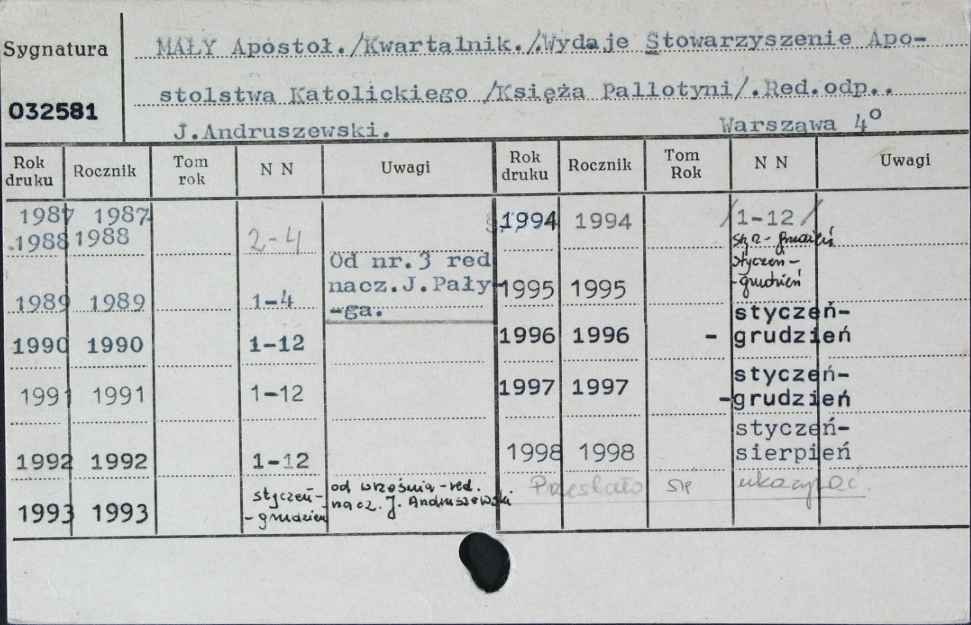 Sygnatura
032581
MAŁY Apostoł./Kwartalnik./.Wydaje Stowarzyszenie Apo-
stolstwa Katolickiego /Księża Pallotyni/.Red.odp..
J.Andruszewski. Warszawa 4º
Rok druku Rocznik Tom rok N N Uwagi Rok druku Rocznik Tom Rok N N Uwagi
1987 1987
1988 1988 2-4
1989 1989 1-4 Od nr.3 red
nacz.J.Pały-
-ga.
1990 1990 1-12
1991 1991 1-12
1992 1992 1-12
1993 1993 styczeń-
-grudzień od września-red.
nacz. J. Andruszewski
1994 1994 /1-12/
stycz-grudzień
1995 1995 styczeń-
-grudzień
1996 1996 styczeń-
- grudzień
1997 1997 styczeń-
-grudzień
1998 1998 styczeń-
sierpień
Przestało się ukazywać.